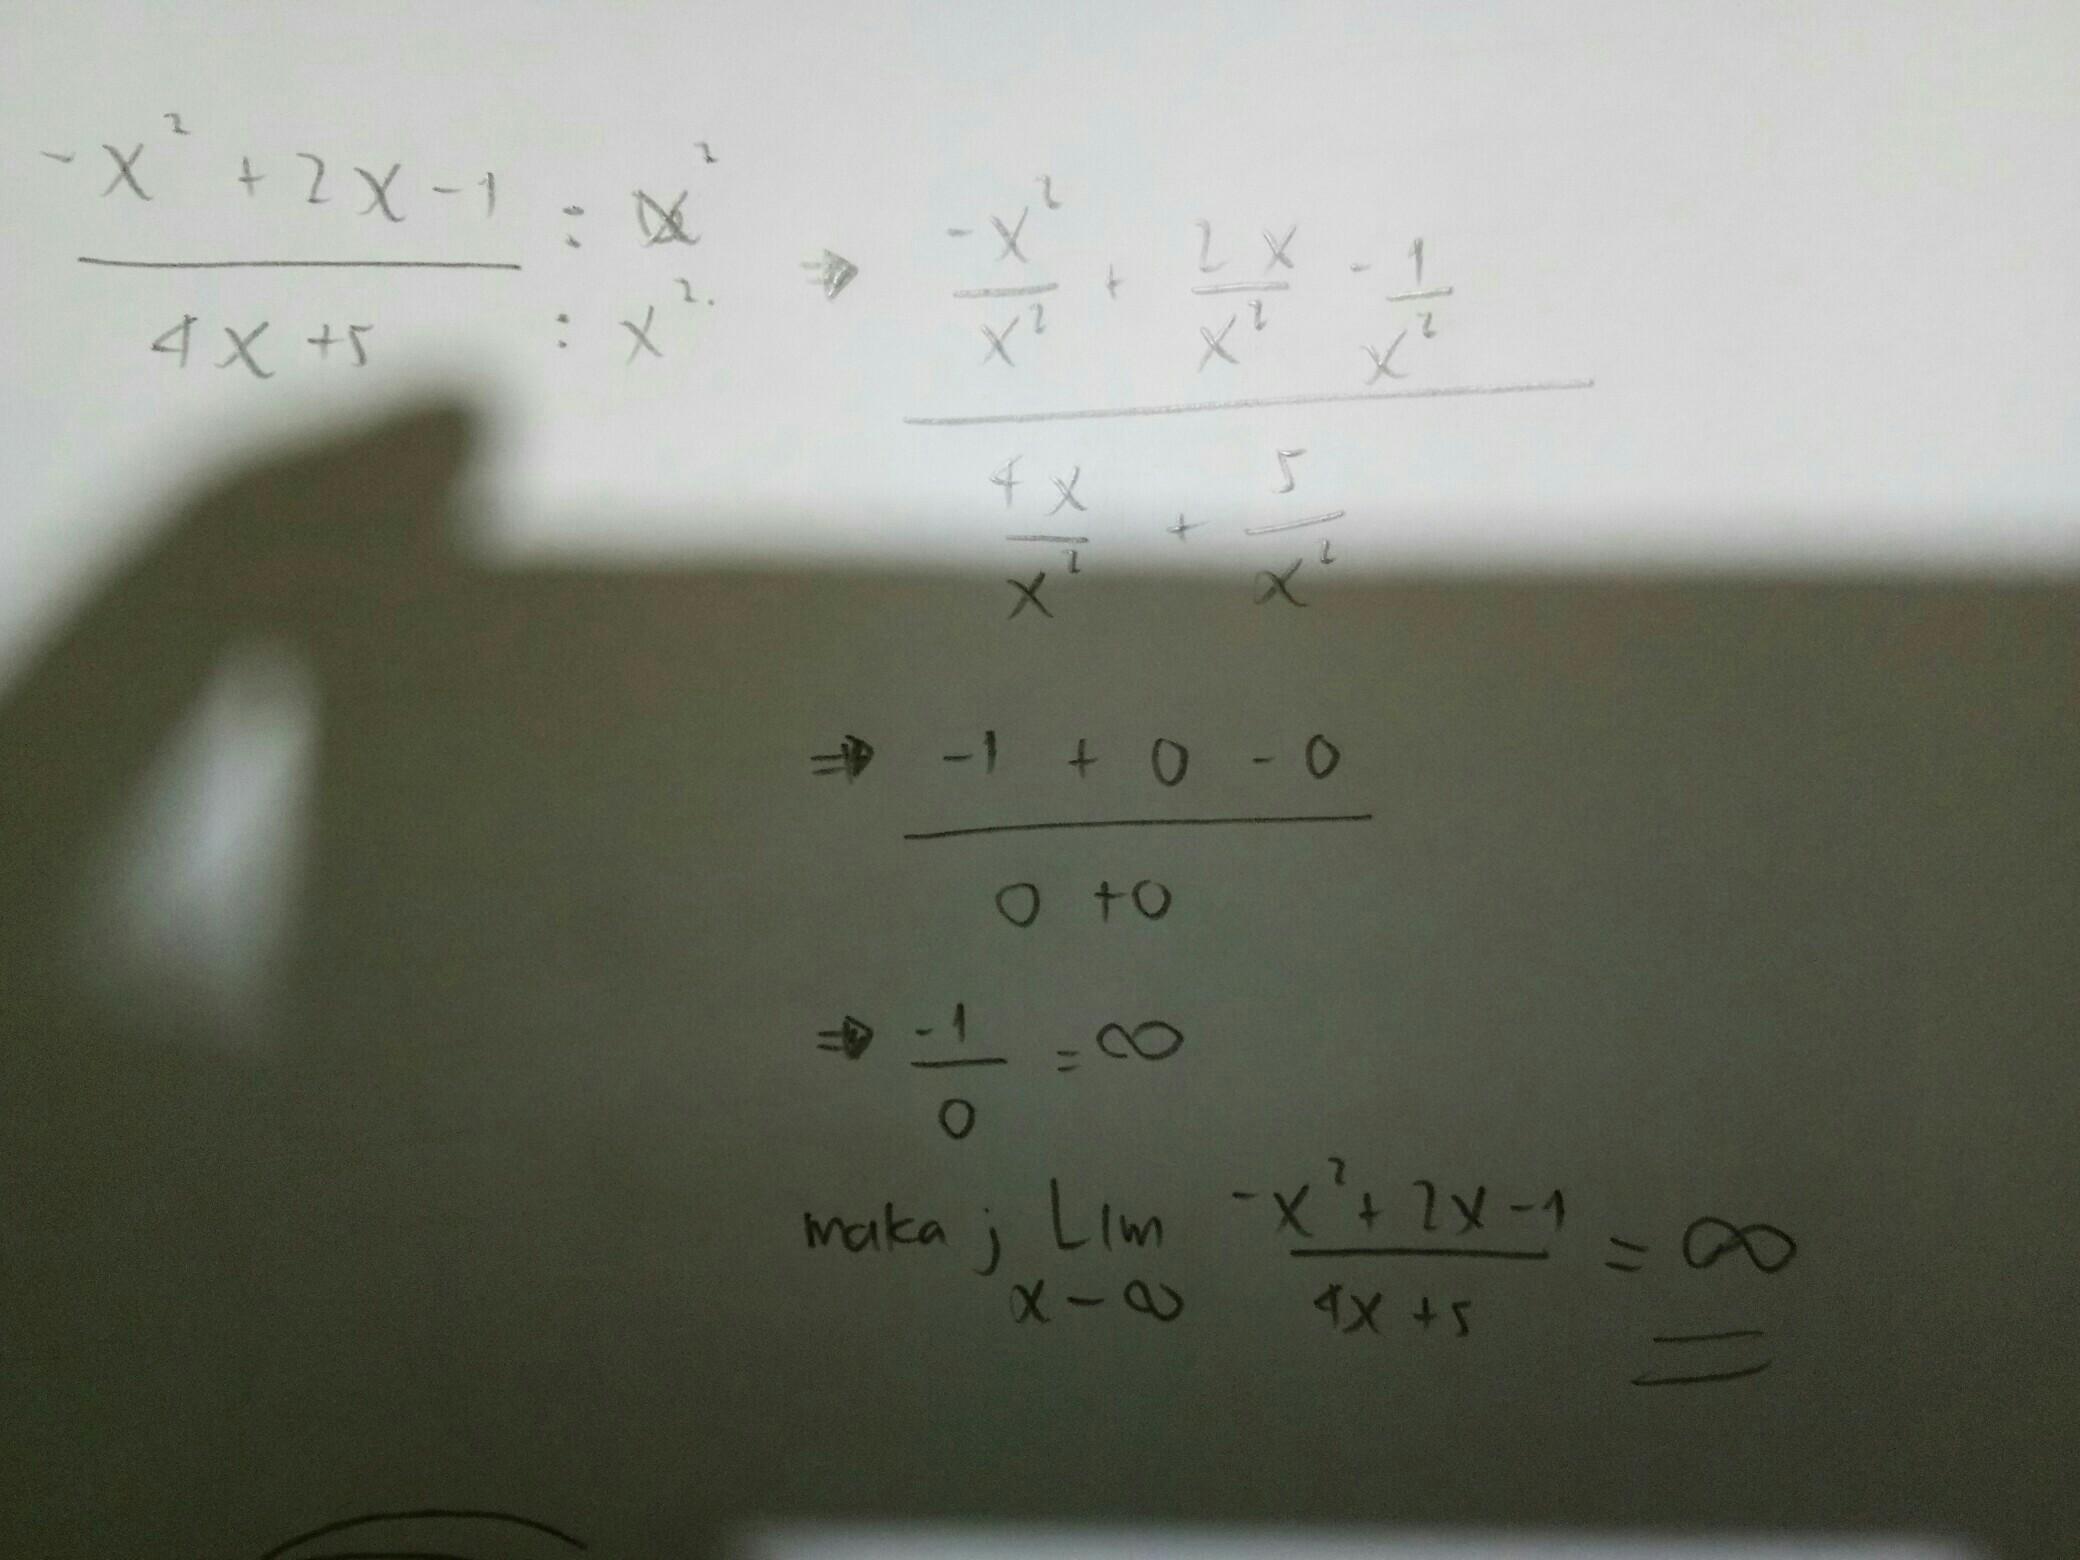 -x² + 2x - 1 : x²
4x + 5 : x².
⇒ -x²/x² + 2x/x² - 1/x²
4x/x² + 5/x²
⇒ -1 + 0 - 0
0 + 0
⇒ -1/0 = ∞
maka ; Lim -x² + 2x - 1 = ∞
x - ∞ 4x + 5